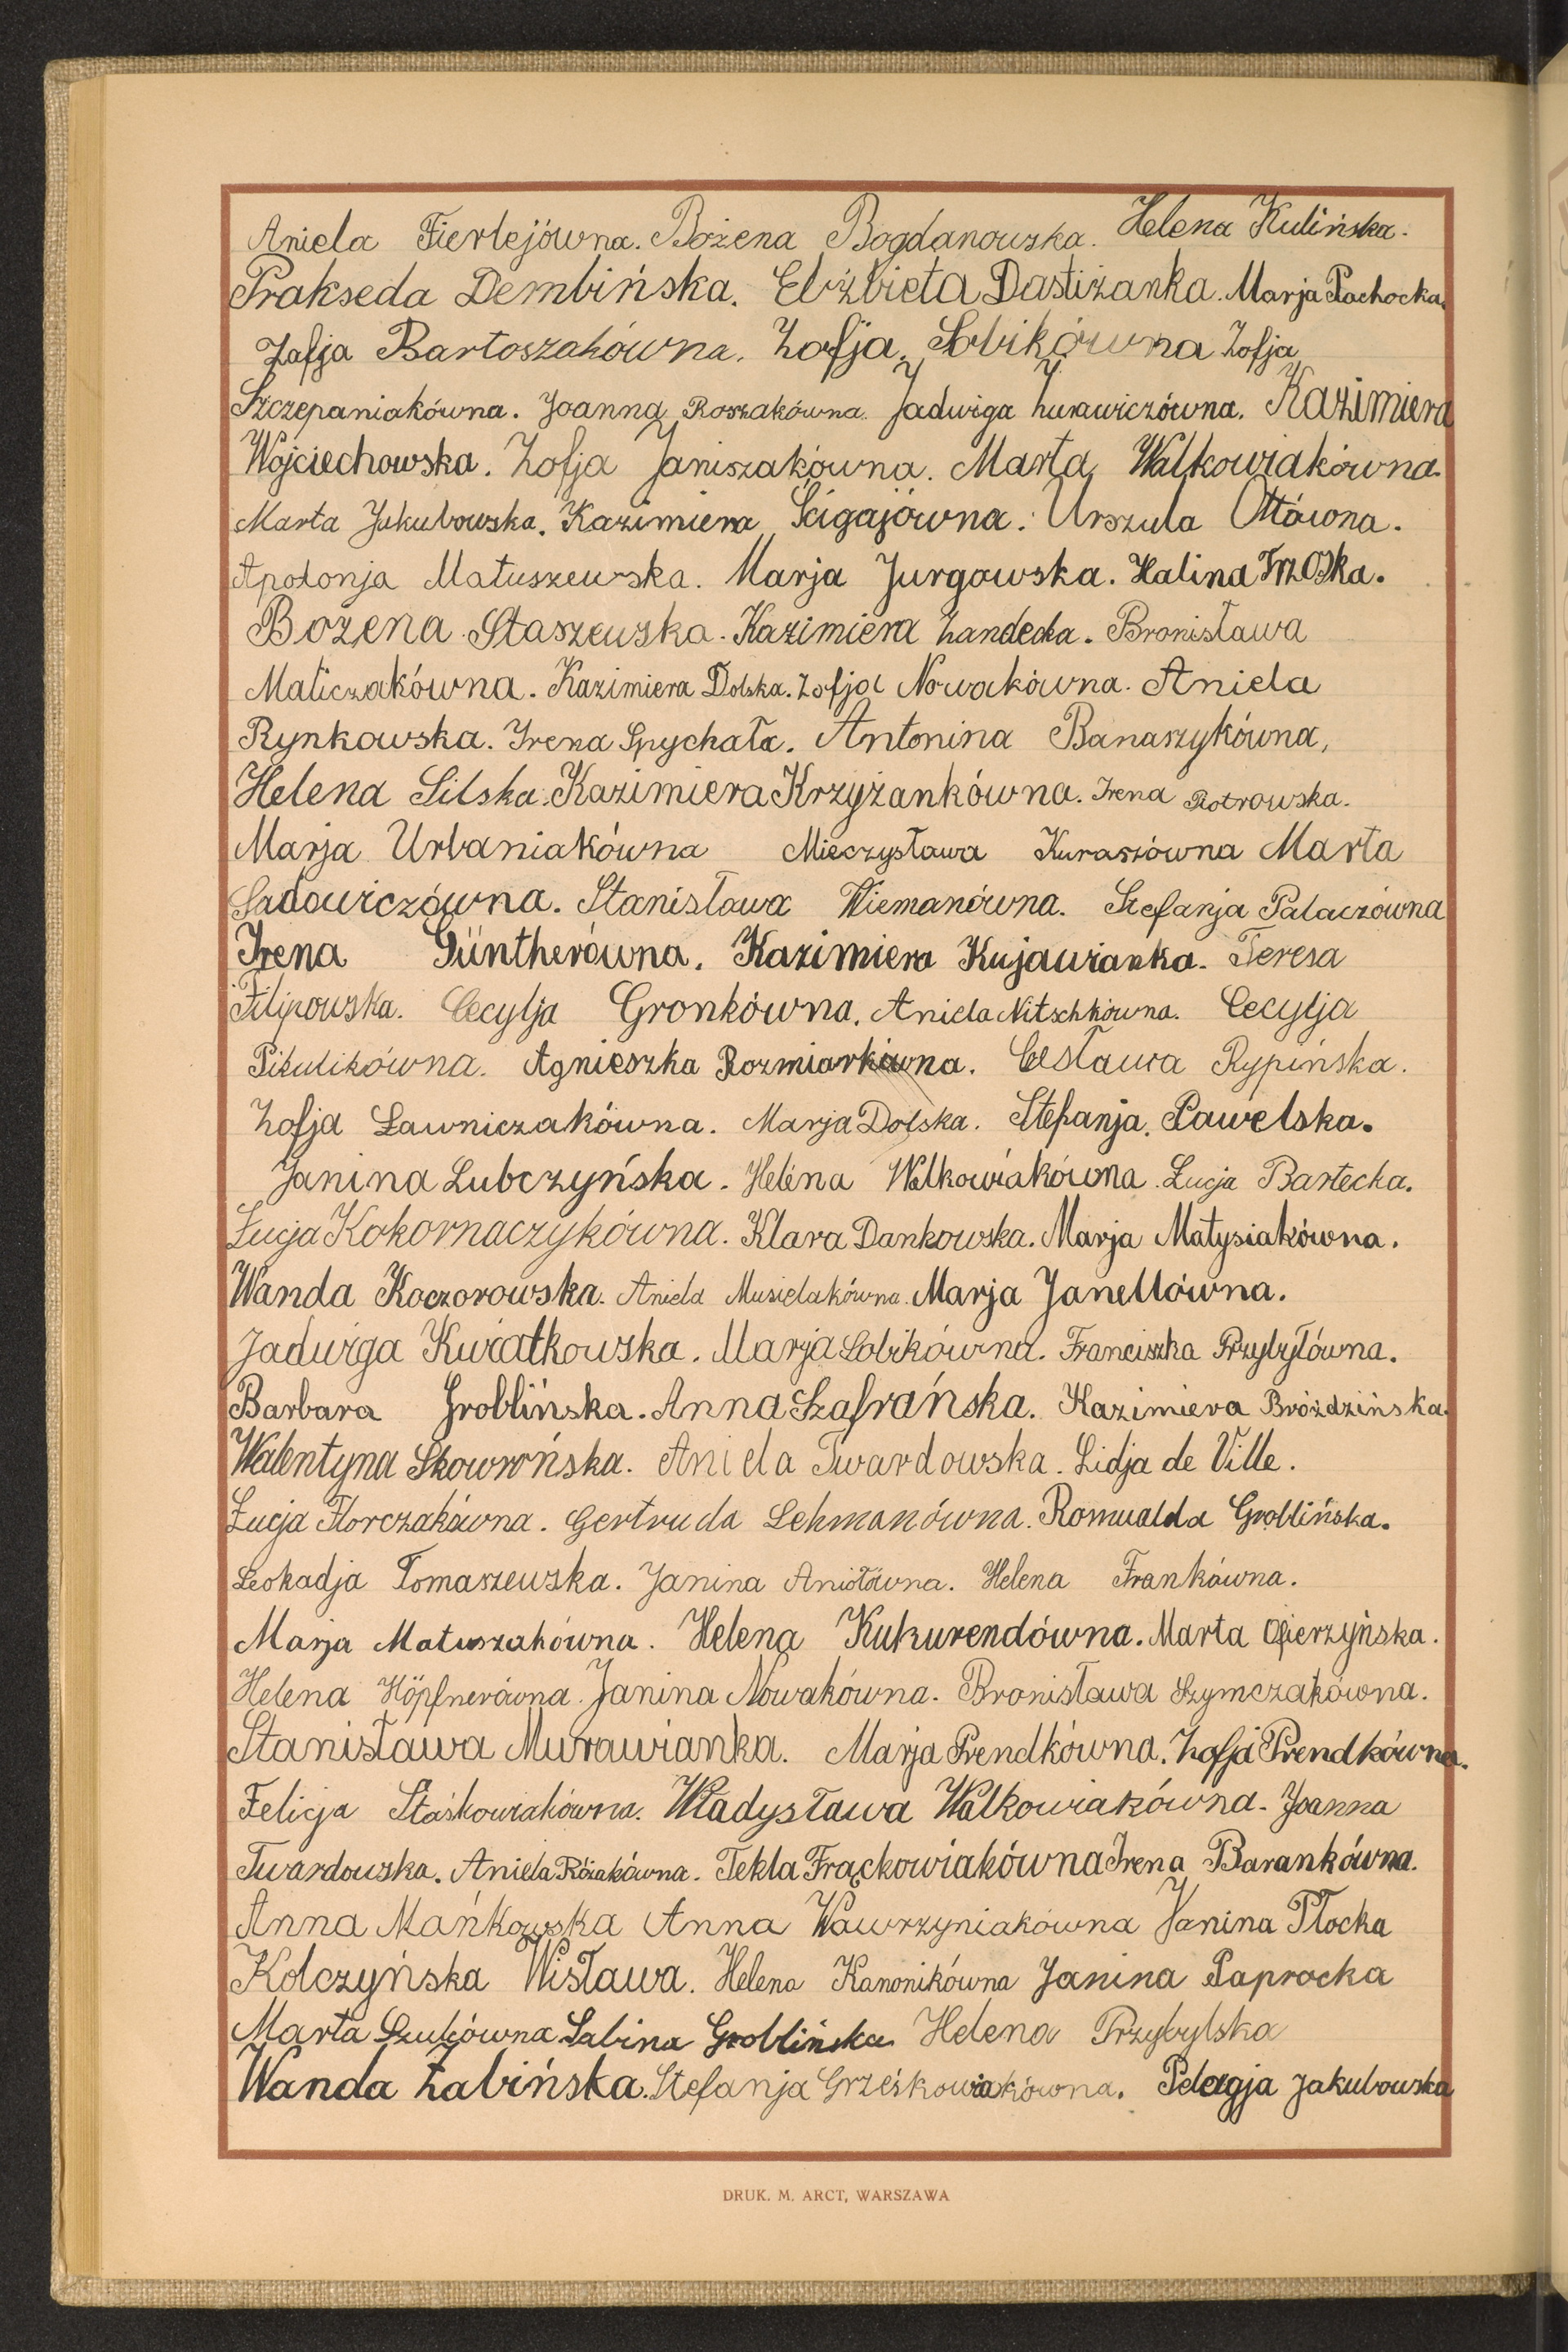 Aniela Fierlejówna. Bożena Bogdanowska. Helena Kulińska.
Prakseda Dembińska. Elżbieta Dastiżanka. Marja Pachocka.
Zofja Bartoszakówna. Zofja Sobikówna Zofja
Szczepaniakówna. Joanna Roszakówna. Jadwiga Żurawiczówna. Kazimiera
Wojciechowska. Zofja Janiszakówna. Marta Walkowiakówna.
Marta Jakubowska. Kazimiera Ścigajówna. Urszula Ottówna.
Apolonja Matuszewska. Marja Jurgowska. Halina Trzoska.
Bożena Staszewska. Kazimiera Żandecka. Bronisława
Maliczakówna. Kazimiera Dolska. Zofja Nowakówna. Aniela
Rynkowska. Irena Spychała. Antonina Banaszykówna,
Helena Silska. Kazimiera Krzyżankówna. Irena Piotrowska.
Marja Urbaniakówna Mieczysława Kuraszówna Marta
Sadowiczówna. Stanisława Wiemanówna. Stefanja Palaczówna
Irena Güntherówna. Kazimiera Kujawianka. Teresa
Filipowska. Cecylja Gronkówna. Aniela Nitschkówna. Cecylja
Pikulikówna. Agnieszka Rozmiarkówna. Cesława Rypińska.
Zofja Ławniczakówna. Marja Dolska. Stefanja Pawelska.
Janina Lubczyńska. Helena Walkowiakówna. Łucja Bartecka.
Łucja Kokornaczykówna. Klara Dankowska. Marja Matysiakówna.
Wanda Koczorowska. Aniela Musielakówna. Marja Janellówna.
Jadwiga Kwiatkowska. Marja Sobikówna. Franciszka Przybyłówna.
Barbara Groblińska. Anna Szafrańska. Kazimiera Bróździńska.
Walentyna Skowrońska. Aniela Twardowska. Lidja de Ville.
Łucja Florczakówna. Gertruda Lehmanówna. Romualda Groblińska.
Leokadja Tomaszewska. Janina Aniołówna. Helena Frankówna.
Marja Matuszakówna. Helena Kukurendówna. Marta Ofierzyńska.
Helena Höpfnerówna. Janina Nowakówna. Bronisława Szymczakówna.
Stanisława Murawianka. Marja Prendkówna. Zofja Prendkówna.
Felicja Staśkowiakówna. Władysława Walkowiakówna. Joanna
Twardowska. Aniela Rózakówna. Tekla Frąckowiakówna Irena Barankówna.
Anna Mańkowska Anna Wawrzyniakówna Janina Płocka
Kolczyńska Wisława. Helena Kanonikówna Janina Paprocka
Marta Szulcówna Sabina Groblińska Helena Przybylska
Wanda Żabińska. Stefanja Grześkowiakówna. Pelagja Jakubowska
DRUK. M. ARCT, WARSZAWA